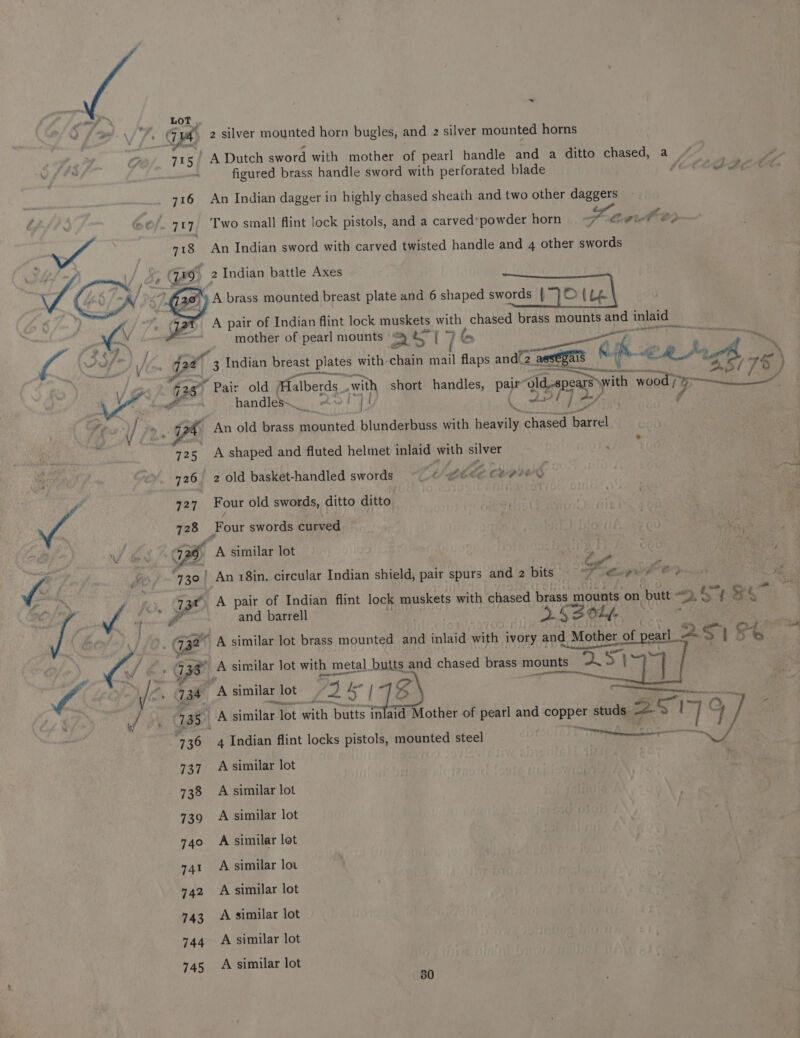 LOT
714 2 silver mounted horn bugles, and 2 silver mounted horns
715 A Dutch sword with mother of pearl handle and a ditto chased, a
figured brass handle sword with perforated blade
716 An Indian dagger in highly chased sheath and two other daggers
717 Two small flint lock pistols, and a carved powder horn Fenton
718 An Indian sword with carved twisted handle and 4 other swords
719 2 Indian battle Axes
720 A brass mounted breast plate and 6 shaped swords
721 A pair of Indian flint lock muskets with chased brass mounts and inlaid
mother of pearl mounts 25176
722 3 Indian breast plates with chain mail flaps and 2 assegais
723 Pair old Halberds with short handles, pair old spears with wood
handles
724 An old brass mounted blunderbuss with heavily chased barrel
725 A shaped and fluted helmet inlaid with silver
726 2 old basket-handled swords
727 Four old swords, ditto ditto
728 Four swords curved
729 A similar lot
730 An 18in. circular Indian shield, pair spurs and 2 bits Fenton
731 A pair of Indian flint lock muskets with chased brass mounts on butt
and barrell
732 A similar lot brass mounted and inlaid with ivory and Mother of pearl 25186
733 A similar lot with metal butts and chased brass mounts 25177
734 A similar lot 25178
735 A similar lot with butts inlaid Mother of pearl and copper studs 25179
736 4 Indian flint locks pistols, mounted steel
737 A similar lot
738 A similar lot
739 A similar lot
740 A similar lot
741 A similar lot
742 A similar lot
743 A similar lot
744 A similar lot
745 A similar lot
30